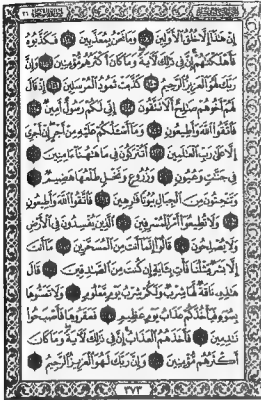 إِنْ هَٰذَا إِلَّا خُلُقُ الْأَوَّلِينَ ١٣٧ وَمَا نَحْنُ بِمُعَذَّبِينَ ١٣٨ فَكَذَّبُوهُ
فَأَهْلَكْنَاهُمْ إِنَّ فِي ذَٰلِكَ لَآيَةً وَمَا كَانَ أَكْثَرُهُم مُّؤْمِنِينَ ١٣٩ وَإِنَّ
رَبَّكَ لَهُوَ الْعَزِيزُ الرَّحِيمُ ١٤٠ كَذَّبَتْ ثَمُودُ الْمُرْسَلِينَ ١٤١ إِذْ قَالَ
لَهُمْ أَخُوهُمْ صَالِحٌ أَلَا تَتَّقُونَ ١٤٢ إِنِّي لَكُمْ رَسُولٌ أَمِينٌ ١٤٣
فَاتَّقُوا اللَّهَ وَأَطِيعُونِ ١٤٤ وَمَا أَسْأَلُكُمْ عَلَيْهِ مِنْ أَجْرٍ إِنْ أَجْرِيَ
إِلَّا عَلَىٰ رَبِّ الْعَالَمِينَ ١٤٥ أَتُتْرَكُونَ فِي مَا هَاهُنَا آمِنِينَ ١٤٦
فِي جَنَّاتٍ وَعُيُونٍ ١٤٧ وَزُرُوعٍ وَنَخْلٍ طَلْعُهَا هَضِيمٌ ١٤٨
وَتَنْحِتُونَ مِنَ الْجِبَالِ بُيُوتًا فَارِهِينَ ١٤٩ فَاتَّقُوا اللَّهَ وَأَطِيعُونِ
١٥٠ وَلَا تُطِيعُوا أَمْرَ الْمُسْرِفِينَ ١٥١ الَّذِينَ يُفْسِدُونَ فِي الْأَرْضِ
وَلَا يُصْلِحُونَ ١٥٢ قَالُوا إِنَّمَا أَنتَ مِنَ الْمُسَحَّرِينَ ١٥٣ مَا أَنتَ
إِلَّا بَشَرٌ مِّثْلُنَا فَأْتِ بِآيَةٍ إِن كُنتَ مِنَ الصَّادِقِينَ ١٥٤ قَالَ
هَٰذِهِ نَاقَةٌ لَّهَا شِرْبٌ وَلَكُمْ شِرْبُ يَوْمٍ مَّعْلُومٍ ١٥٥ وَلَا تَمَسُّوهَا
بِسُوءٍ فَيَأْخُذَكُمْ عَذَابُ يَوْمٍ عَظِيمٍ ١٥٦ فَعَقَرُوهَا فَأَصْبَحُوا
نَادِمِينَ ١٥٧ فَأَخَذَهُمُ الْعَذَابُ إِنَّ فِي ذَٰلِكَ لَآيَةً وَمَا كَانَ
أَكْثَرُهُم مُّؤْمِنِينَ ١٥٨ وَإِنَّ رَبَّكَ لَهُوَ الْعَزِيزُ الرَّحِيمُ ١٥٩
٣٧٣